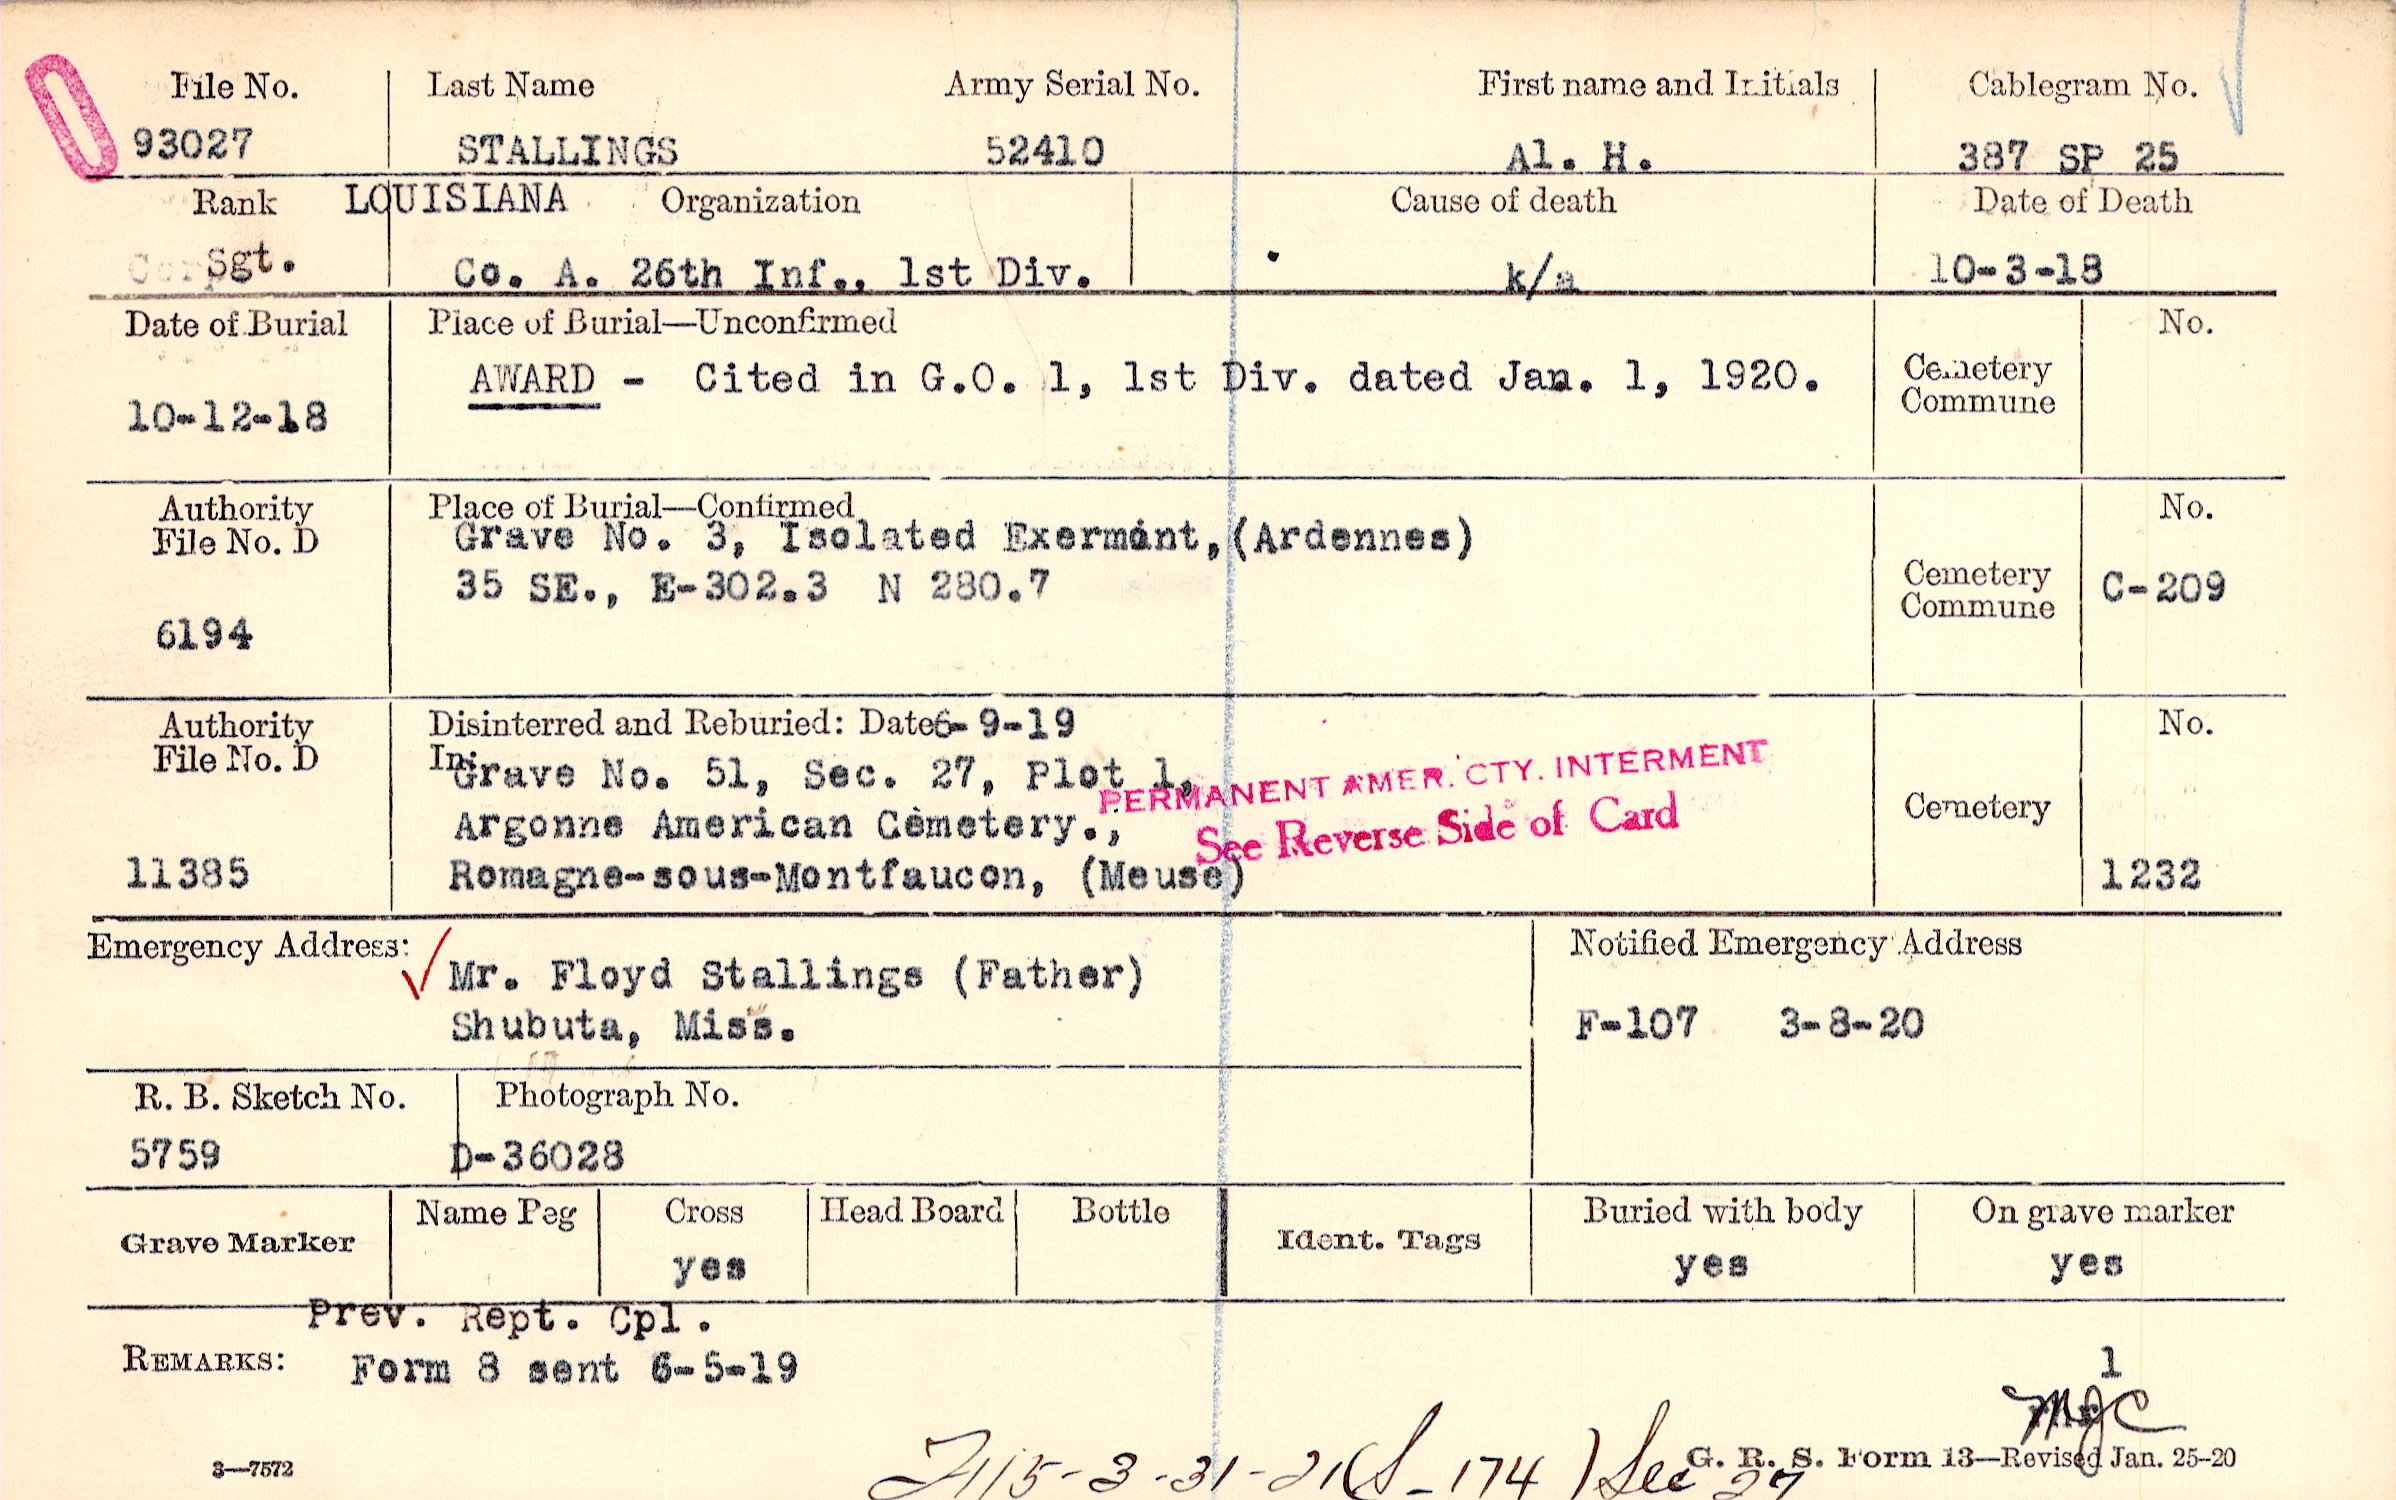 File No. Last Name Army Serial No. First name and Initials Cablegram No.
93027 STALLINGS 52410 Al. H. 387 SP 25
Rank LOUISIANA Organization Cause of death Date of Death
Sgt. Co. A. 26th Inf., 1st Div. k/a 10-3-18
Date of Burial Place of Burial—Unconfirmed No.
AWARD - Cited in G.O. 1, 1st Div. dated Jan. 1, 1920. Cemetery
Commune
10-12-18
Authority Place of Burial—Confirmed No.
File No. D Grave No. 3, Isolated Exermont, (Ardennes)
35 SE., E-302.3 N 280.7 Cemetery C-209
Commune
6194
Authority Disinterred and Reburied: Date 6-9-19 No.
File No. D In: Grave No. 51, Sec. 27, Plot 1,
PERMANENT AMER. CTY. INTERMENT
Argonne American Cemetery., See Reverse Side of Card Cemetery
11385 Romagne-sous-Montfaucon, (Meuse) 1232
Emergency Address: Notified Emergency Address
Mr. Floyd Stallings (Father)
Shubuta, Miss. F-107 3-8-20
R. B. Sketch No. Photograph No.
5759 D-36028
Name Peg Cross Head Board Bottle Buried with body On grave marker
Grave Marker Ident. Tags
yes yes yes
Prev. Rept. Cpl.
REMARKS: Form 8 sent 6-5-19 1
MJC
3—7572 G. R. S. Form 13—Revised Jan. 25-20
3-31-21 (S-174) Sec 27